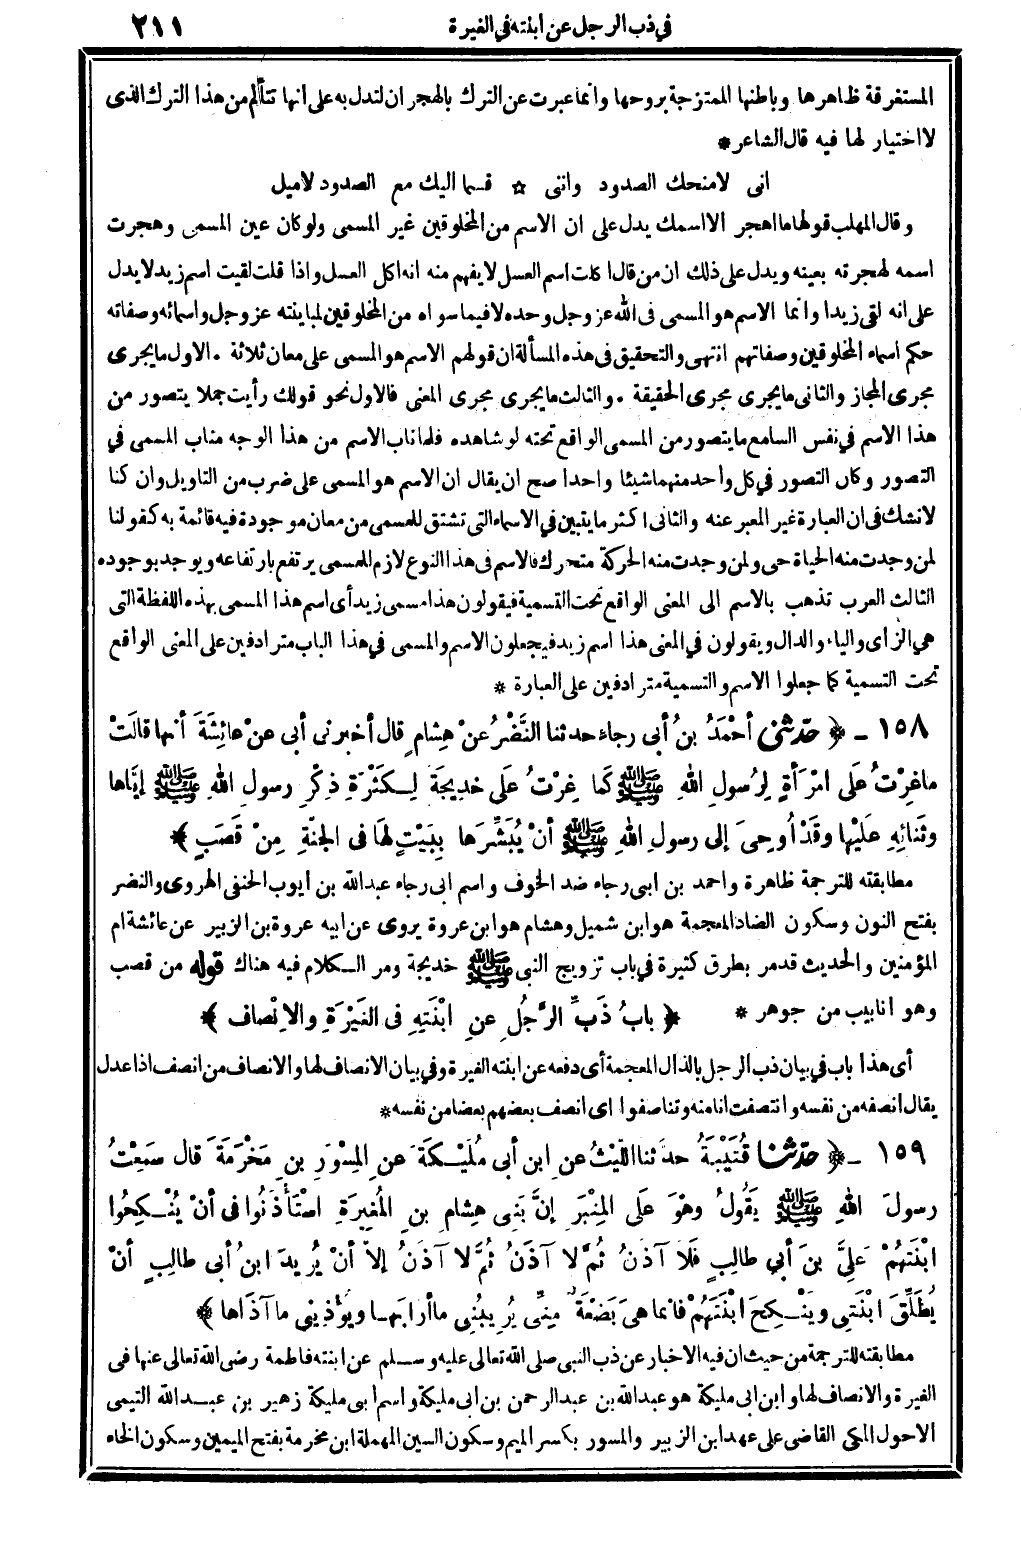 في ذب الرجل عن ابنته في الغيرة ٢١١
المستغرقة ظاهرها وباطنها الممتزجة بروحها وانما عبرت عن الترك بالهجر ان لتدل به على انها تتألم من هذا الترك الذى
لا اختيار لها فيه قال الشاعر *
انى لامنحك الصدود واننى ☆ قسما اليك مع الصدود لاميل
وقال المهلب قولها ما اهجر الا اسمك يدل على ان الاسم من المخلوقين غير المسمى ولو كان عين المسمى وهجرت
اسمه لهجرته بعينه ويدل على ذلك ان من قال اكلت اسم العسل لا يفهم منه انه اكل العسل واذا قلت لقيت اسم زيد لا يدل
على انه لقى زيدا وانما الاسم هو المسمى فى الله عز وجل وحده لا فيما سواه من المخلوقين لمباينته عز وجل واسمائه وصفاته
حكم اسماء المخلوقين وصفاتهم انتهى والتحقيق فى هذه المسألة ان قولهم الاسم هو المسمى على معان ثلاثة . الاول ما يجرى
مجرى المجاز والثانى ما يجرى مجرى الحقيقة . والثالث ما يجرى مجرى المعنى فالاول نحو قولك رأيت جملا يتصور من
هذا الاسم في نفس السامع ما يتصور من المسمى الواقع تحته لو شاهده فلما ناب الاسم من هذا الوجه مناب المسمى في
التصور وكان التصور في كل واحد منهما شيئا واحدا صح ان يقال ان الاسم هو المسمى على ضرب من التاويل وان كنا
لا نشك فى ان العبارة غير المعبر عنه والثانى اكثر ما يتبين في الاسماء التى تشتق للمسمى من معان موجودة فيه قائمة به كقولنا
لمن وجدت منه الحياة حى ولمن وجدت منه الحركة متحرك فالاسم فى هذا النوع لازم للمسمى يرتفع بارتفاعه ويوجد بوجوده
الثالث العرب تذهب بالاسم الى المعنى الواقع تحت التسمية فيقولون هذا مسمى زيد أى اسم هذا المسمى بهذه اللفظة التى
هي الزاى والياء والدال ويقولون في المعنى هذا اسم زيد فيجعلون الاسم والمسمى في هذا الباب مترادفين على المعنى الواقع
تحت التسمية كما جعلوا الاسم والتسمية مترادفين على العبارة *
١٥٨ ـ ﴿ حدّثني أحْمَدُ بنُ أبى رجاء حدثنا النَّضْرُ عنْ هِشامٍ قال أخبرنى أبى عنْ عائِشَةَ أنها قالَتْ
ماغِرْتُ عَلى امْرَأَةٍ لِرَسولِ اللهِ ﷺ كَما غِرْتُ عَلى خدِيجَةَ لِكَثْرَةِ ذِكْرِ رسولِ اللهِ ﷺ إيَّاها
وثَنائِهِ عَلَيْها وقَدْ أُوحِىَ إلى رسولِ اللهِ ﷺ أنْ يُبَشِّرَها بِبَيْتٍ لهَا فى الجنّةِ مِنْ قَصَبٍ ﴾
مطابقته للترجمة ظاهرة واحمد بن ابى رجاء ضد الخوف واسم ابى رجاء عبدالله بن ايوب الحنفى الهروى والنضر
بفتح النون وسكون الضاد المعجمة هو ابن شميل وهشام هو ابن عروة يروى عن ابيه عروة بن الزبير عن عائشة ام
المؤمنين والحديث قد مر بطرق كثيرة في باب تزويج النبى ﷺ خديجة ومر الكلام فيه هناك قوله من قصب
وهو انابيب من جوهر * ﴿ بابُ ذَبِّ الرَّجُلِ عنِ ابْنَتِهِ فى الغَيْرَةِ والاِنْصاف ﴾
أى هذا باب في بيان ذب الرجل بالذال المعجمة أى دفعه عن ابنته الغيرة وفي بيان الانصاف لها والانصاف من انصف اذا عدل
يقال انصفه من نفسه وانتصفت انا منه وتناصفوا اى انصف بعضهم بعضا من نفسه *
١٥٩ ـ ﴿ حدّثنا قُتَيْبَةُ حدّثنا اللّيْثُ عنِ ابنِ أبى مُلَيْكَةَ عنِ المِسْوَرِ بنِ مَخْرَمَةَ قال سَمِعْتُ
رسولَ اللهِ ﷺ يَقُولُ وهْوَ عَلَى المِنْبَرِ إنَّ بَنِى هِشامِ بنِ المُغِيرَةِ اسْتَأذَنُوا فى أنْ يُنْكِحُوا
ابْنَتَهُمْ عَلِيَّ بنَ أبي طالِبٍ فَلَا آذَنُ ثُمَّ لا آذَنُ ثُمَّ لا آذَنُ إلاّ أنْ يُرِيدَ ابنُ أبى طالِبٍ أنْ
يُطَلِّقَ ابْنَتِي ويَنْكِحَ ابْنَتَهُمْ فانما هىَ بَضْعَةٌ مِنِّى يُرِيبُنِي ما أرابَها ويُؤْذِينِي ما آذَاها ﴾
مطابقته للترجمة من حيث ان فيه الاخبار عن ذب النبى صلى الله تعالى عليه وسلم عن ابنته فاطمة رضى الله تعالى عنها فى
الغيرة والانصاف لها وابن ابى مليكة هو عبدالله بن عبدالرحمن بن ابى مليكة واسم ابى مليكة زهير بن عبد الله التيمى
الاحول المكى القاضى على عهد ابن الزبير والمسور بكسر الميم وسكون السين المهملة ابن مخرمة بفتح الميمين وسكون الخاء